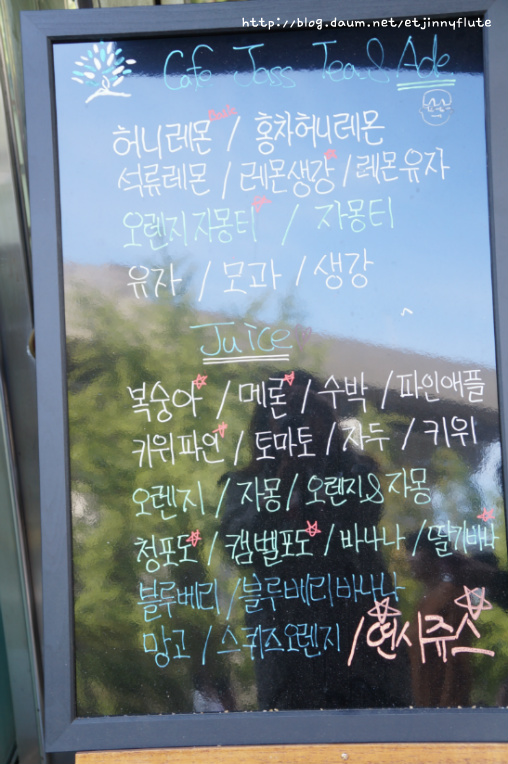 http://blog.daum.net/etjinnyflute
Cafe Jass Tea & Ade
허니레몬 / 홍차허니레몬
석류레몬 / 레몬생강 / 레몬유자
오렌지자몽티 / 자몽티
유자 / 모과 / 생강
Juice
복숭아 / 메론 / 수박 / 파인애플
키위파인 / 토마토 / 자두 / 키위
오렌지 / 자몽 / 오렌지&자몽
청포도 / 캠벨포도 / 바나나 / 딸기바나
블루베리 / 블루베리바나나
망고 / 스퀴즈오렌지 / 연시쥬스